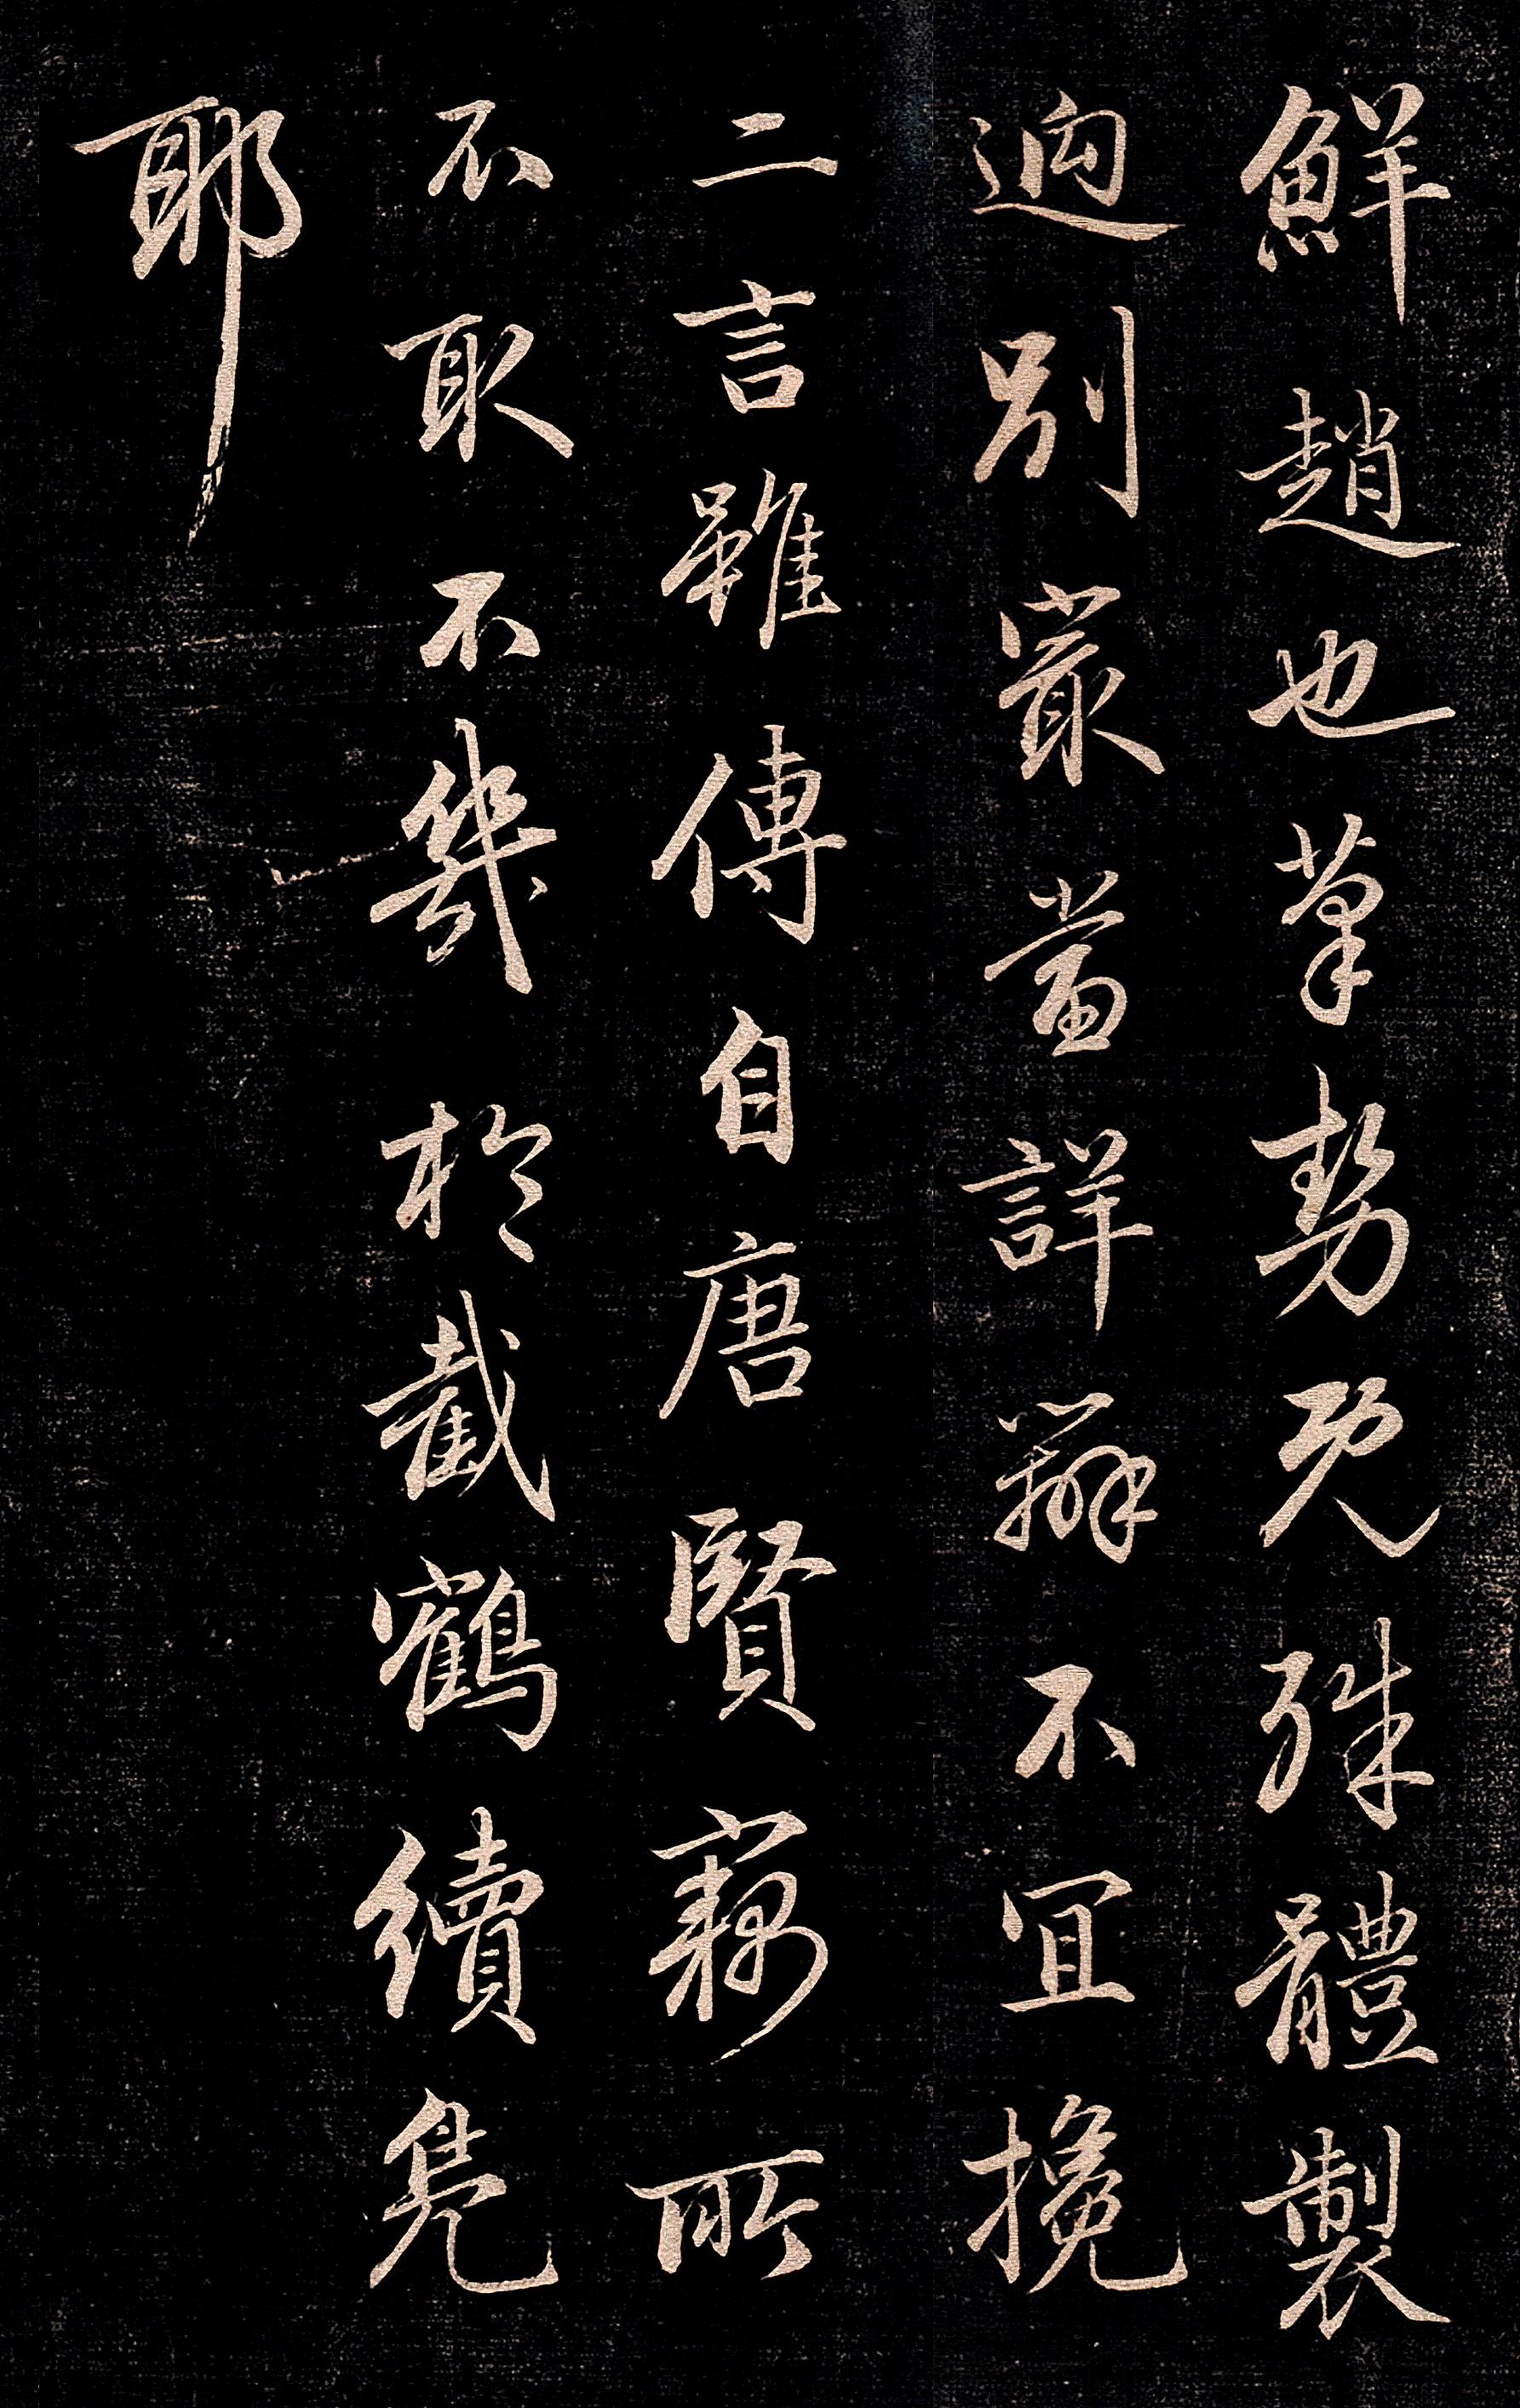 鮮趙也筆勢既殊體製
逈別最當詳辯不宜攙
二言雖傳自唐賢竊所
不取不幾於截鶴續鳧
耶